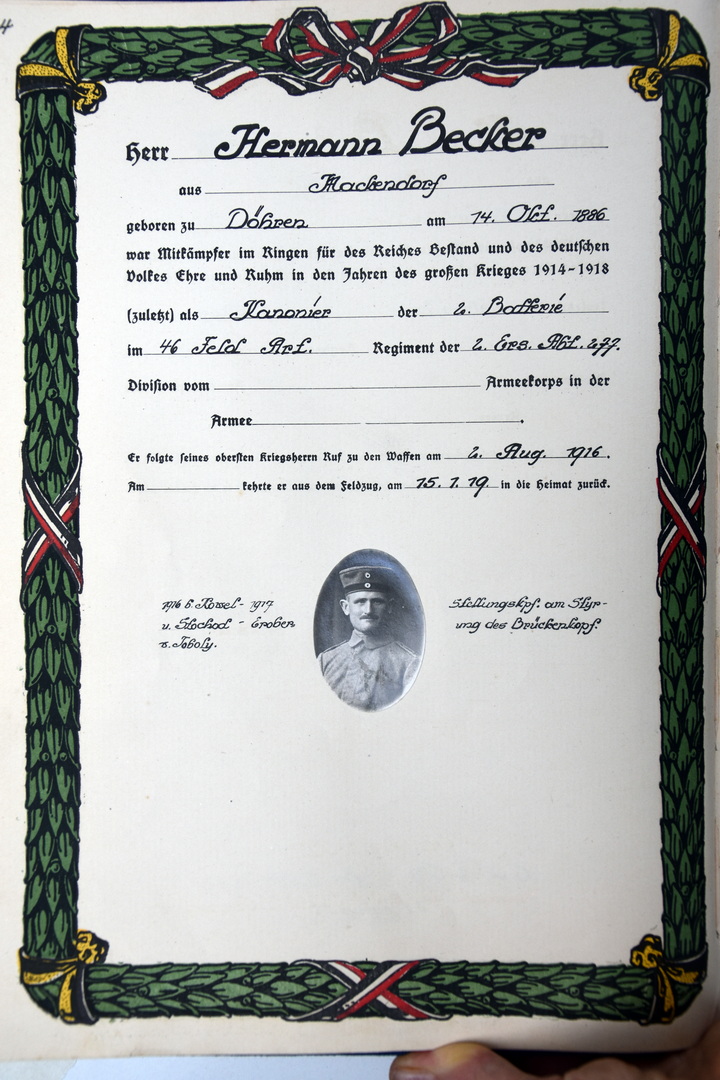 4
Herr Hermann Becker
aus Mackendorf
geboren zu Döhren am 14. Okt. 1886
war Mitkämpfer im Ringen für des Reiches Bestand und des deutschen
Volkes Ehre und Ruhm in den Jahren des großen Krieges 1914-1918
(zuletzt) als Kanonier der 2. Batterie
im 46 Feld Art. Regiment der 2. Ers. Abt. 277.
Division vom Armeekorps in der
Armee .
Er folgte seines obersten Kriegsherrn Ruf zu den Waffen am 2. Aug. 1916.
Am kehrte er aus dem Feldzug, am 15. 1. 19. in die Heimat zurück.
1916 b. Kowel - 1917 Stellungskpf. am Styr-
u. Stochod - Erober ung des Brückenkopf.
v. Toboly.